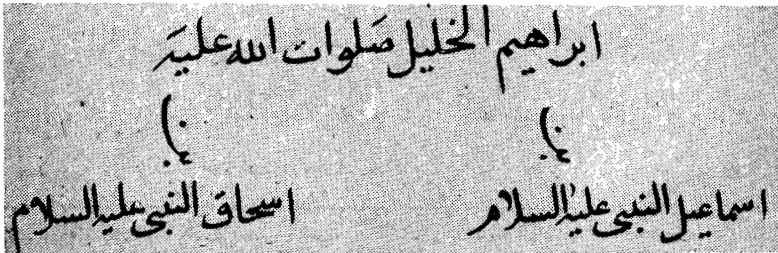 ابراهيم الخليل صَلوات الله عليه
اسماعيل النبى عليه السلام
اسحاق النبى عليه السلام